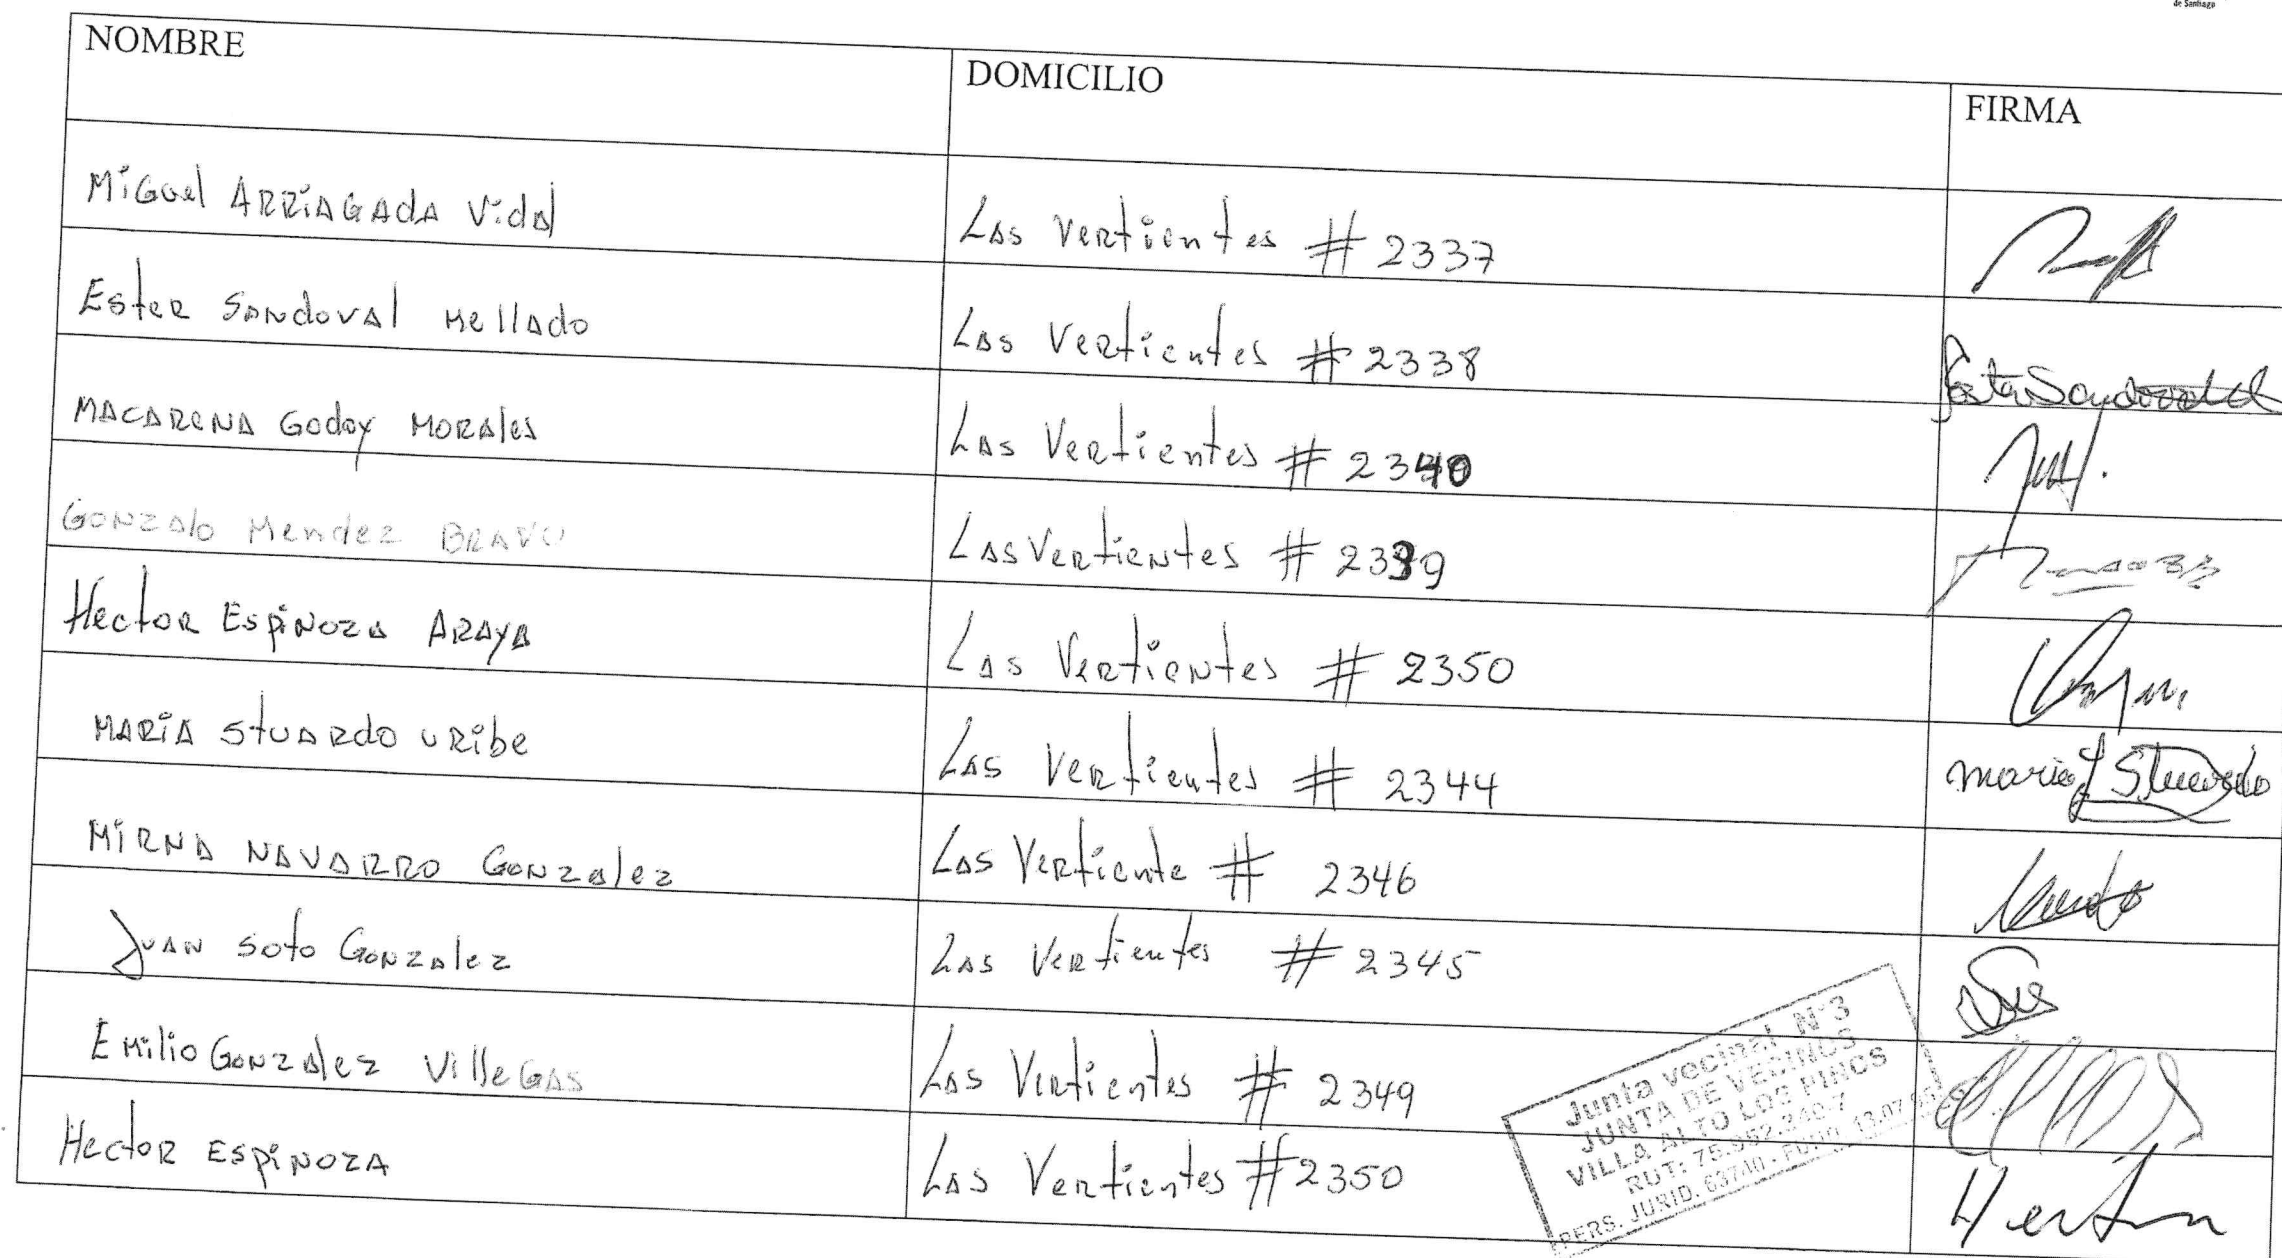 de Santiago
NOMBRE DOMICILIO FIRMA
Miguel Arriagada Vidal Las Vertientes # 2337
Ester Sandoval Mellado Las Vertientes # 2338 Ester Sandoval
Macarena Godoy Morales Las Vertientes # 2340
Gonzalo Mendez Bravo Las Vertientes # 2339
Hector Espinoza Araya Las Vertientes # 2350
Maria Stuardo Uribe Las Vertientes # 2344 Maria J Stuardo
Mirna Navarro Gonzalez Las Vertiente # 2346
Juan Soto Gonzalez Las Vertientes # 2345
Emilio Gonzalez Villegas Las Vertientes # 2349
Hector Espinoza Las Vertientes # 2350
Junta vecinal N°3
JUNTA DE VECINOS
VILLA ALTO LOS PINOS
RUT:
PERS. JURID.